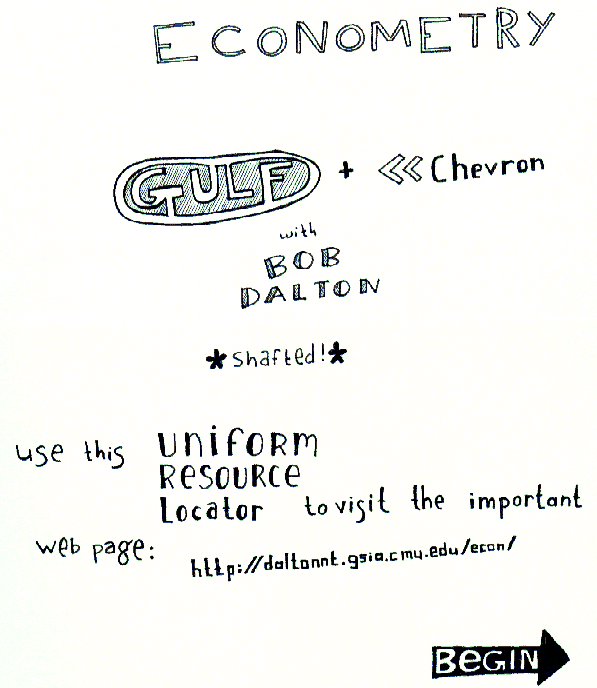 ECONOMETRY
GULF + Chevron
with
BOB
DALTON
*shafted!*
use this UNIFORM
RESOURCE
Locator to visit the important
web page:
http://daltonnt.gsia.cmu.edu/econ/
BEGIN